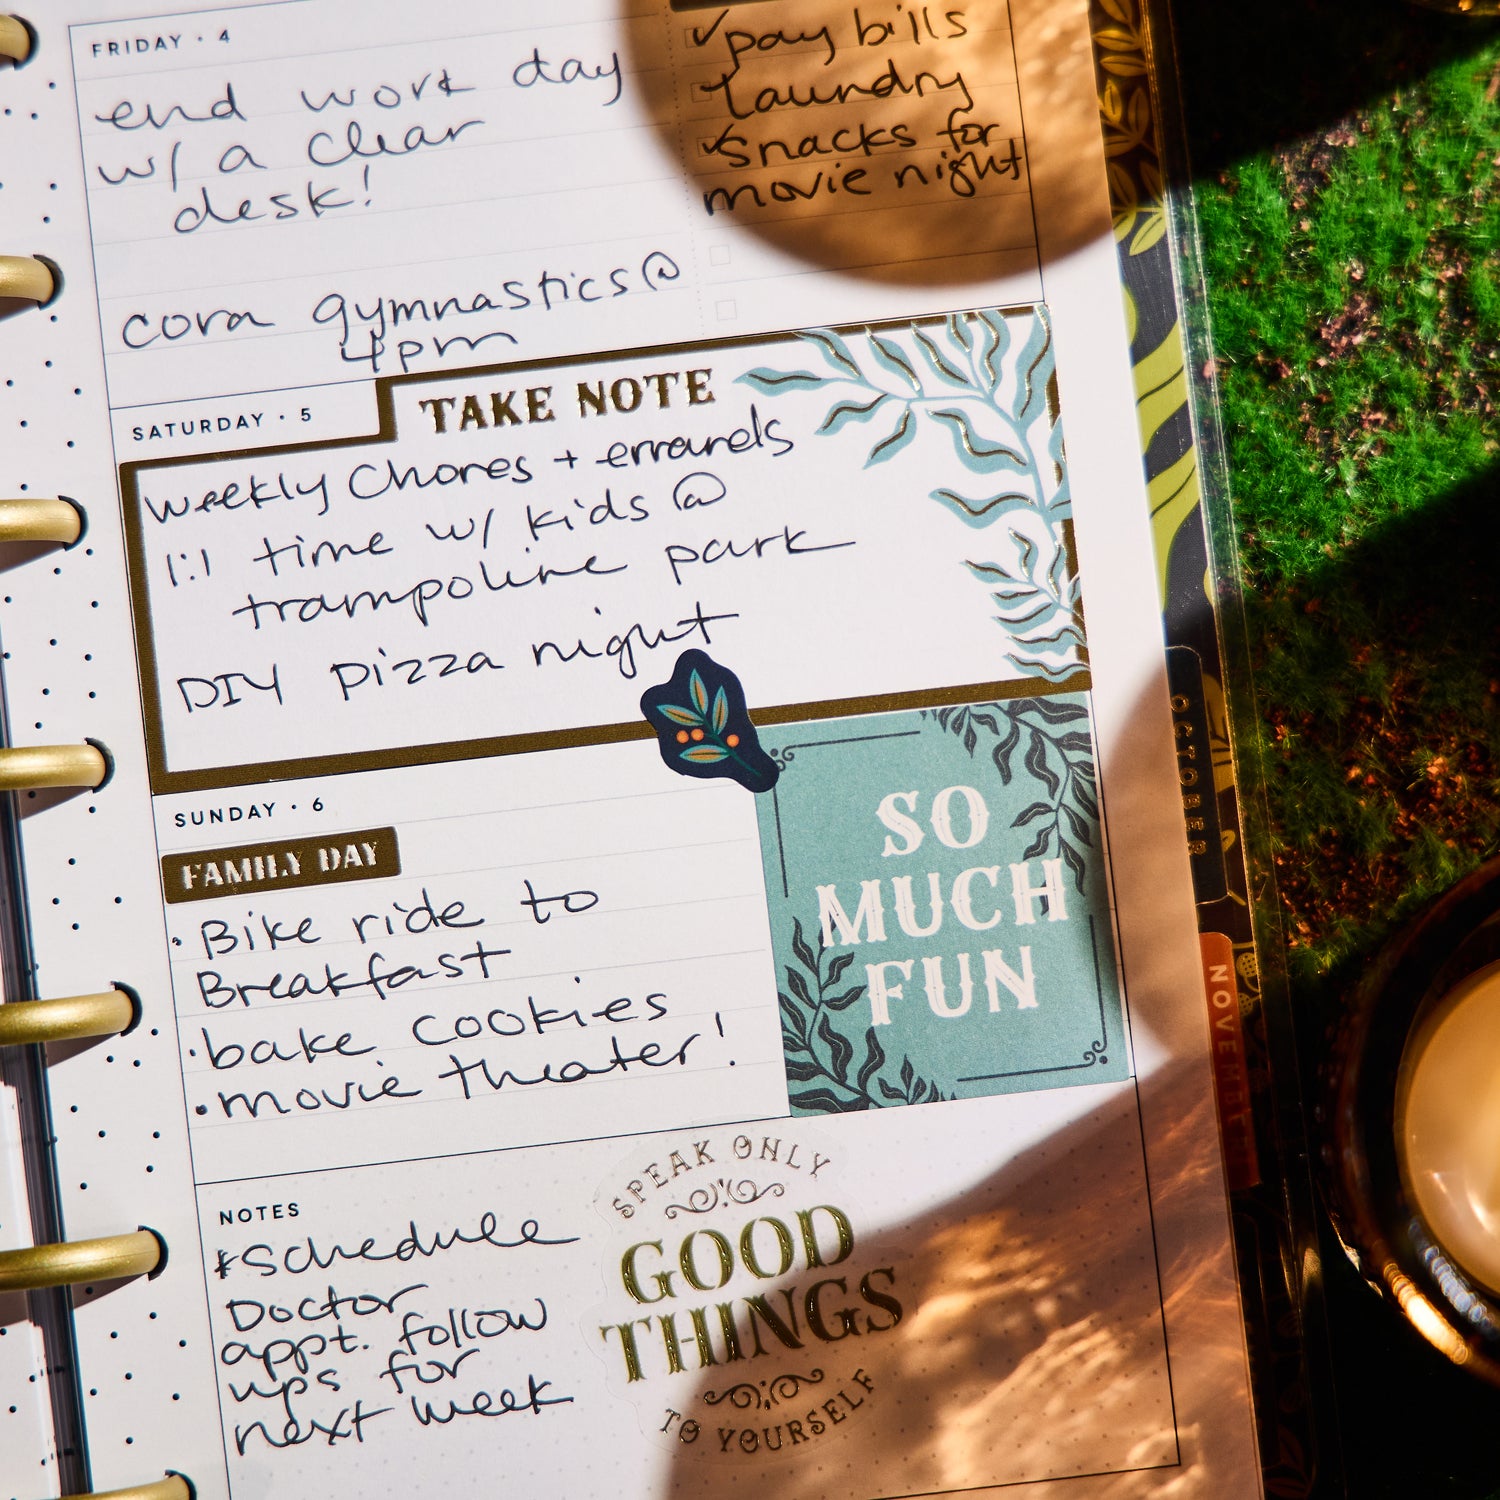 FRIDAY · 4
end work day
w/ a clear
desk!
cora gymnastics @
4pm
✓ pay bills
Laundry
✓ Snacks for
movie night
SATURDAY · 5
TAKE NOTE
weekly Chores + errands
1:1 time w/ kids @
trampoline park
DIY pizza night
SUNDAY · 6
FAMILY DAY
· Bike ride to
Breakfast
· bake cookies
· movie theater!
SO
MUCH
FUN
NOTES
*Schedule
Doctor
appt. follow
ups for
next week
SPEAK ONLY
GOOD
THINGS
TO YOURSELF
OCTOBER
NOVEMBER